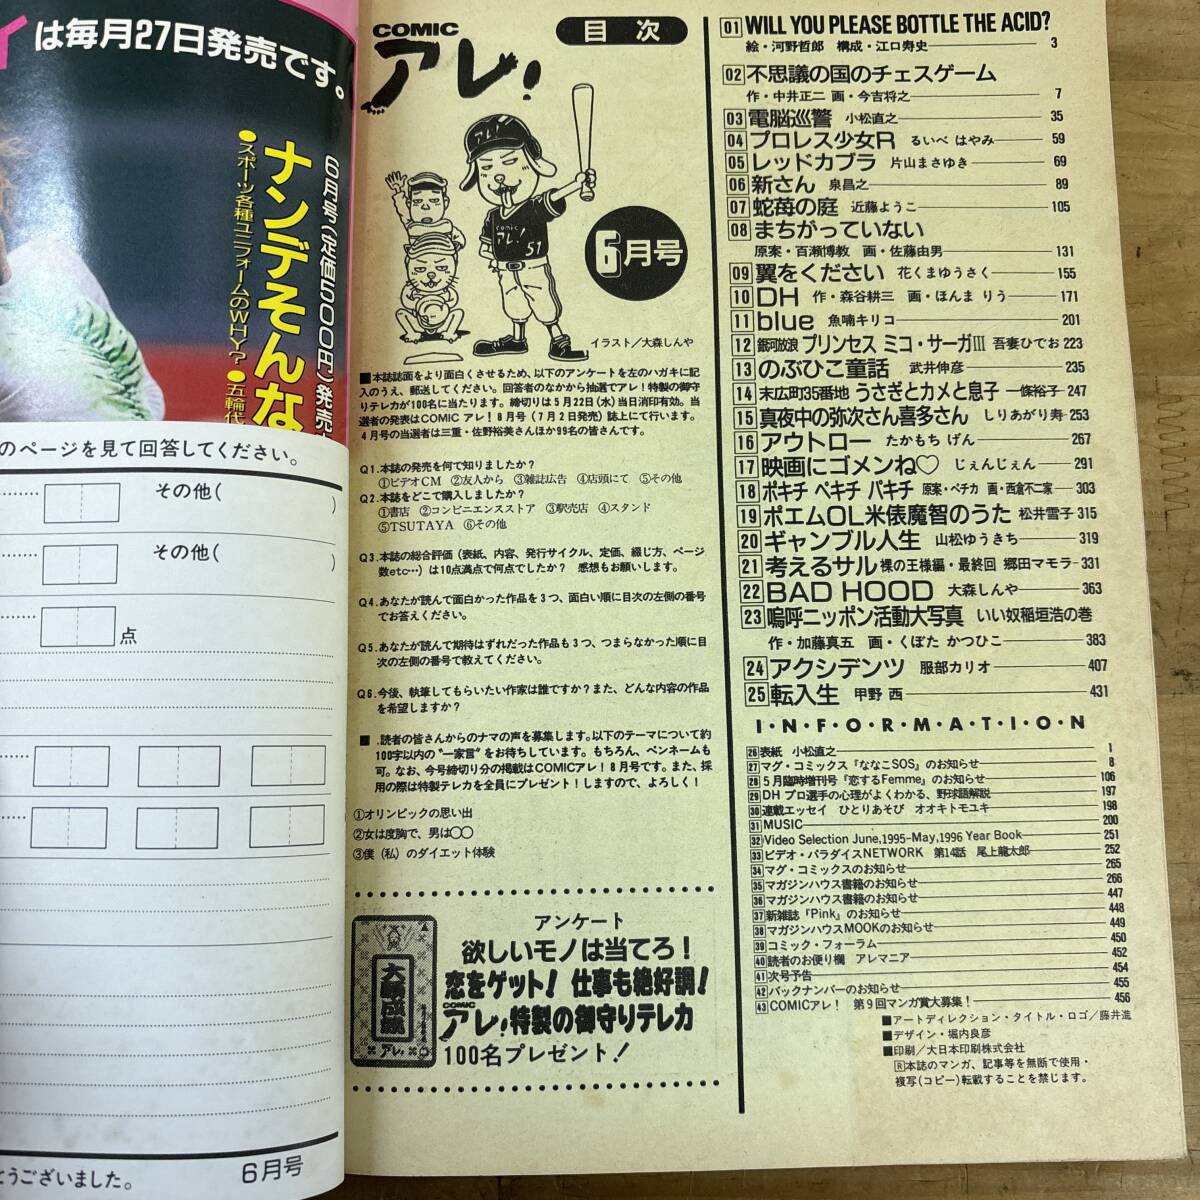 ィは毎月27日発売です。
6月号(定価500円)発売
ナンデそんな
●スポーツ各種ユニフォームのWHY?●五輪代
のページを見て回答してください。
その他( )
その他( )
点
とうございました。
6月号
COMIC
アレ!
目次
アレ!
comic
アレ!
51
6月号
イラスト/大森しんや
■本誌誌面をより面白くさせるため、以下のアンケートを左のハガキに記
入のうえ、郵送してください。回答者のなかから抽選でアレ!特製の御守
りテレカが100名に当たります。締切りは5月22日(水)当日消印有効。当
選者の発表はCOMIC アレ!8月号(7月2日発売)誌上にて行います。
4月号の当選者は三重・佐野裕美さんほか99名の皆さんです。
Q1.本誌の発売を何で知りましたか?
①ビデオCM ②友人から ③雑誌広告 ④店頭にて ⑤その他
Q2.本誌をどこで購入しましたか?
①書店 ②コンビニエンスストア ③駅売店 ④スタンド
⑤TSUTAYA ⑥その他
Q3.本誌の総合評価(表紙、内容、発行サイクル、定価、綴じ方、ページ
数etc…)は10点満点で何点でしたか? 感想もお願いします。
Q4.あなたが読んで面白かった作品を3つ、面白い順に目次の左側の番号
でお答えください。
Q5.あなたが読んで期待はずれだった作品も3つ、つまらなかった順に目
次の左側の番号で教えてください。
Q6.今後、執筆してもらいたい作家は誰ですか?また、どんな内容の作品
を希望しますか?
■.読者の皆さんからのナマの声を募集します。以下のテーマについて約
100字以内の“一家言”をお待ちしています。もちろん、ペンネームも
可。なお、今号締切り分の掲載はCOMICアレ!8月号です。また、採
用の際は特製テレカを全員にプレゼント!しますので、よろしく!
①オリンピックの思い出
②女は度胸で、男は○○
③僕(私)のダイエット体験
大願成就
アレ!
アンケート
欲しいモノは当てろ!
恋をゲット!仕事も絶好調!
COMIC アレ!特製の御守りテレカ
100名プレゼント!
01 WILL YOU PLEASE BOTTLE THE ACID?
絵・河野哲郎 構成・江口寿史 3
02 不思議の国のチェスゲーム
作・中井正二 画・今吉将之 7
03 電脳巡警 小松直之 35
04 プロレス少女R るいべ はやみ 59
05 レッドカブラ 片山まさゆき 69
06 新さん 泉昌之 89
07 蛇苺の庭 近藤ようこ 105
08 まちがっていない
原案・百瀬博教 画・佐藤由男 131
09 翼をください 花くまゆうさく 155
10 DH 作・森谷耕三 画・ほんま りう 171
11 blue 魚喃キリコ 201
12 銀河放浪 プリンセス ミコ・サーガIII 吾妻ひでお 223
13 のぶひこ童話 武井伸彦 235
14 末広町35番地 うさぎとカメと息子 一條裕子 247
15 真夜中の弥次さん喜多さん しりあがり寿 253
16 アウトロー たかもち げん 267
17 映画にゴメンね♡ じぇんじぇん 291
18 ポキチ ペキチ パキチ 原案・ペチカ 画・西倉不二家 303
19 ポエムOL米俵魔智のうた 松井雪子 315
20 ギャンブル人生 山松ゆうきち 319
21 考えるサル 裸の王様編・最終回 郷田マモラ 331
22 BAD HOOD 大森しんや 363
23 嗚呼ニッポン活動大写真 いい奴稲垣浩の巻
作・加藤真五 画・くぼた かつひこ 383
24 アクシデンツ 服部カリオ 407
25 転入生 甲野 酉 431
I・N・F・O・R・M・A・T・I・O・N
26 表紙 小松直之 1
27 マグ・コミックス『ななこSOS』のお知らせ 8
28 5月臨時増刊号『恋するFemme』のお知らせ 106
29 DH プロ選手の心理がよくわかる、野球語解説 197
30 連載エッセイ ひとりあそび オオキトモユキ 198
31 MUSIC 200
32 Video Selection June,1995-May,1996 Year Book 251
33 ビデオ・パラダイスNETWORK 第14話 尾上龍太郎 252
34 マグ・コミックスのお知らせ 265
35 マガジンハウス書籍のお知らせ 266
36 マガジンハウス書籍のお知らせ 447
37 新雑誌『Pink』のお知らせ 448
38 マガジンハウスMOOKのお知らせ 449
39 コミック・フォーラム 450
40 読者のお便り欄 アレマニア 452
41 次号予告 454
42 バックナンバーのお知らせ 455
43 COMICアレ! 第9回マンガ賞大募集! 456
■アートディレクション・タイトル・ロゴ/藤井進
■デザイン・堀内良彦
■印刷/大日本印刷株式会社
R本誌のマンガ、記事等を無断で使用・
複写(コピー)転載することを禁じます。